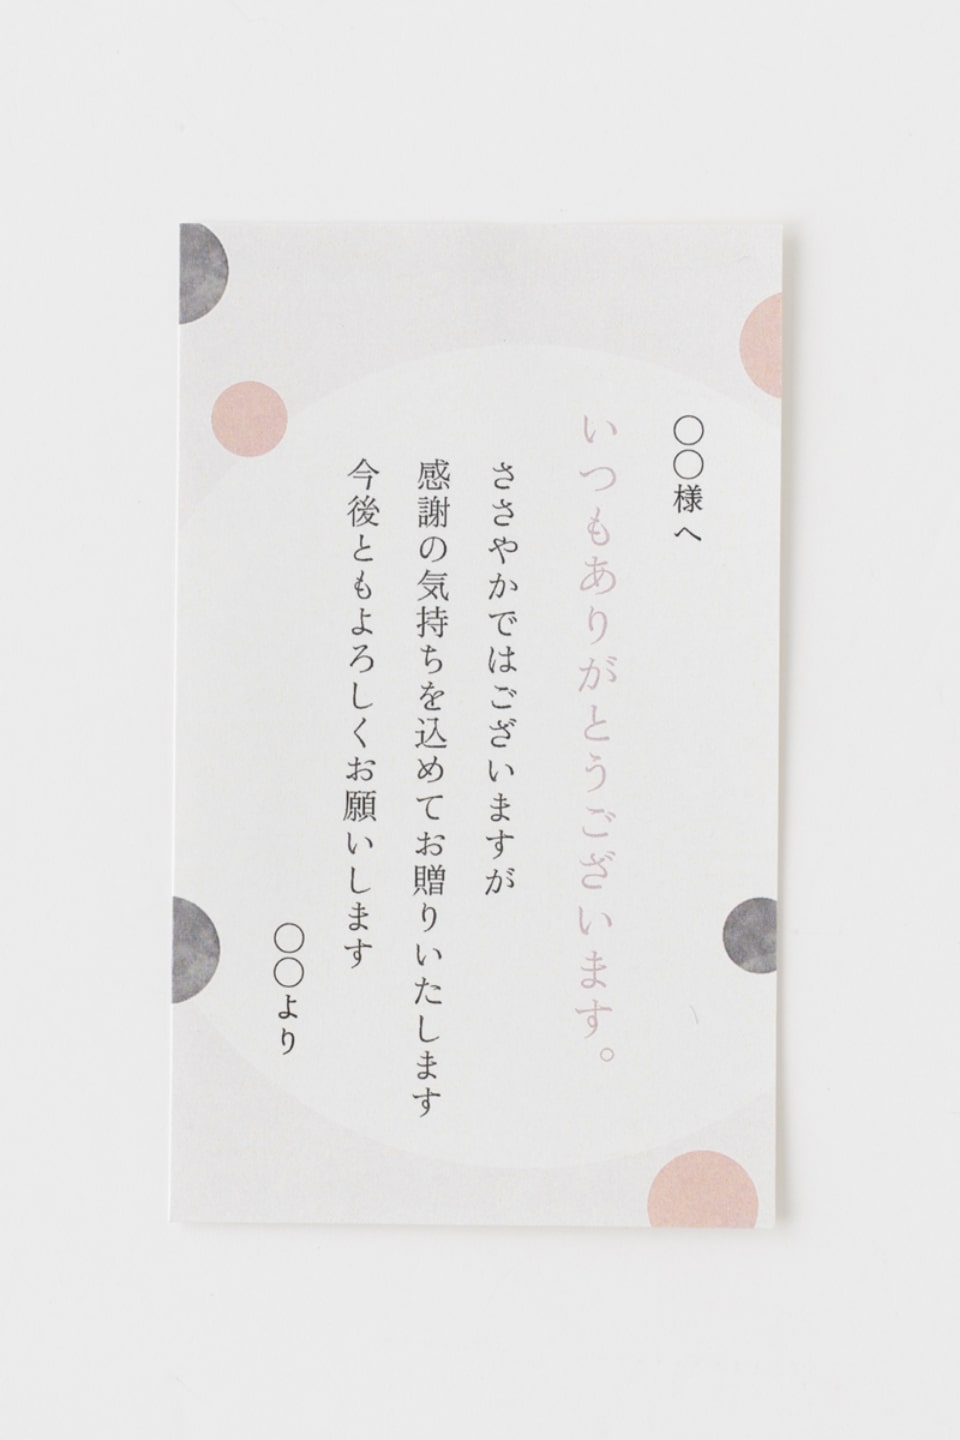 〇〇様へ
いつもありがとうございます。
ささやかではございますが
感謝の気持ちを込めてお贈りいたします
今後ともよろしくお願いします
〇〇より